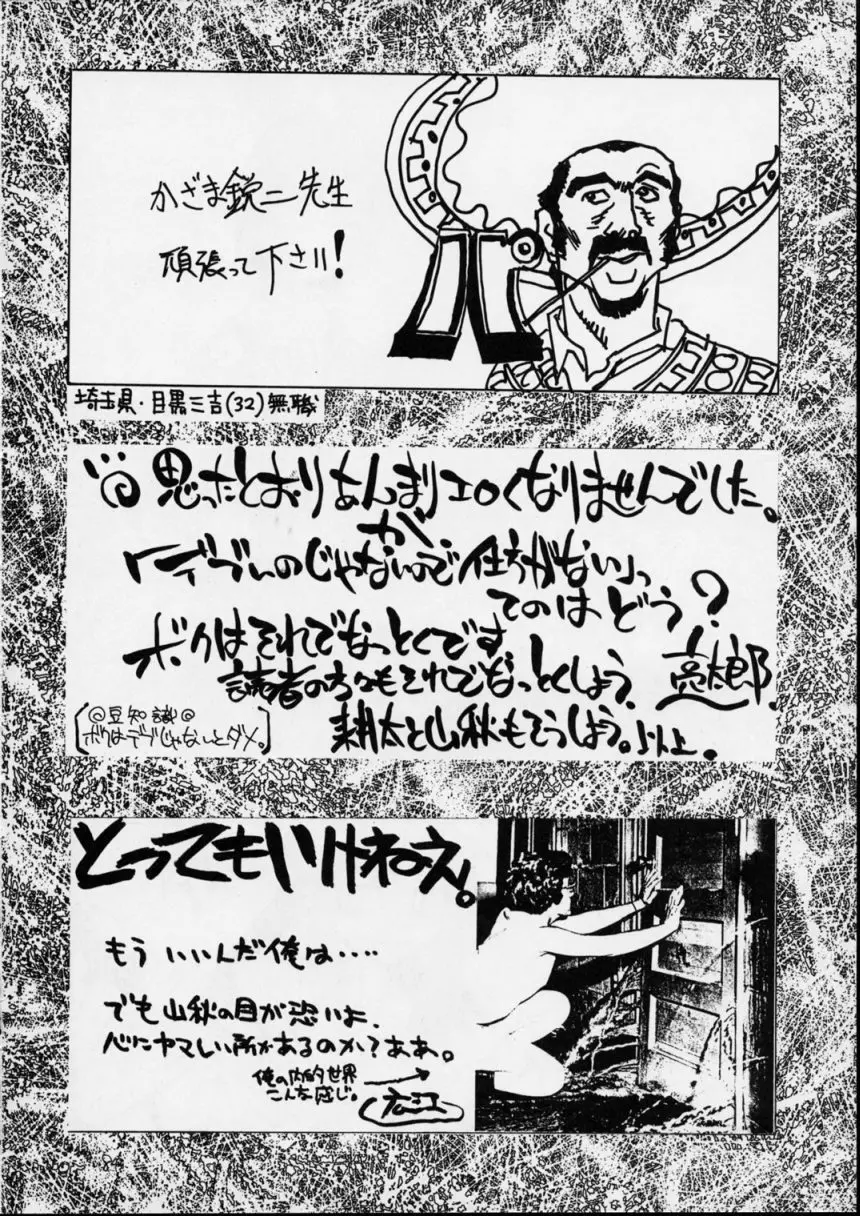 かざま鋭二先生
頑張って下さい!
埼玉県・目黒三吉(32)無職
思ったとおりあんまりエロくなりませんでした。
が、
「デブいのじゃないので仕方がない」っ
てのはどう?
ボクはそれでなっとくです
読者の方々もそれでなっとくしよう、
亮太郎
耕太と山秋もそうしよう。以上。
◎豆知識◎
ボクはデブじゃないとダメ。
とってもいけねえ。
もういいんだ俺は‥‥
でも山秋の目が恐いよ、
心にヤマしい所があるのか?ああ。
俺の内的世界
こんな感じ。
広江